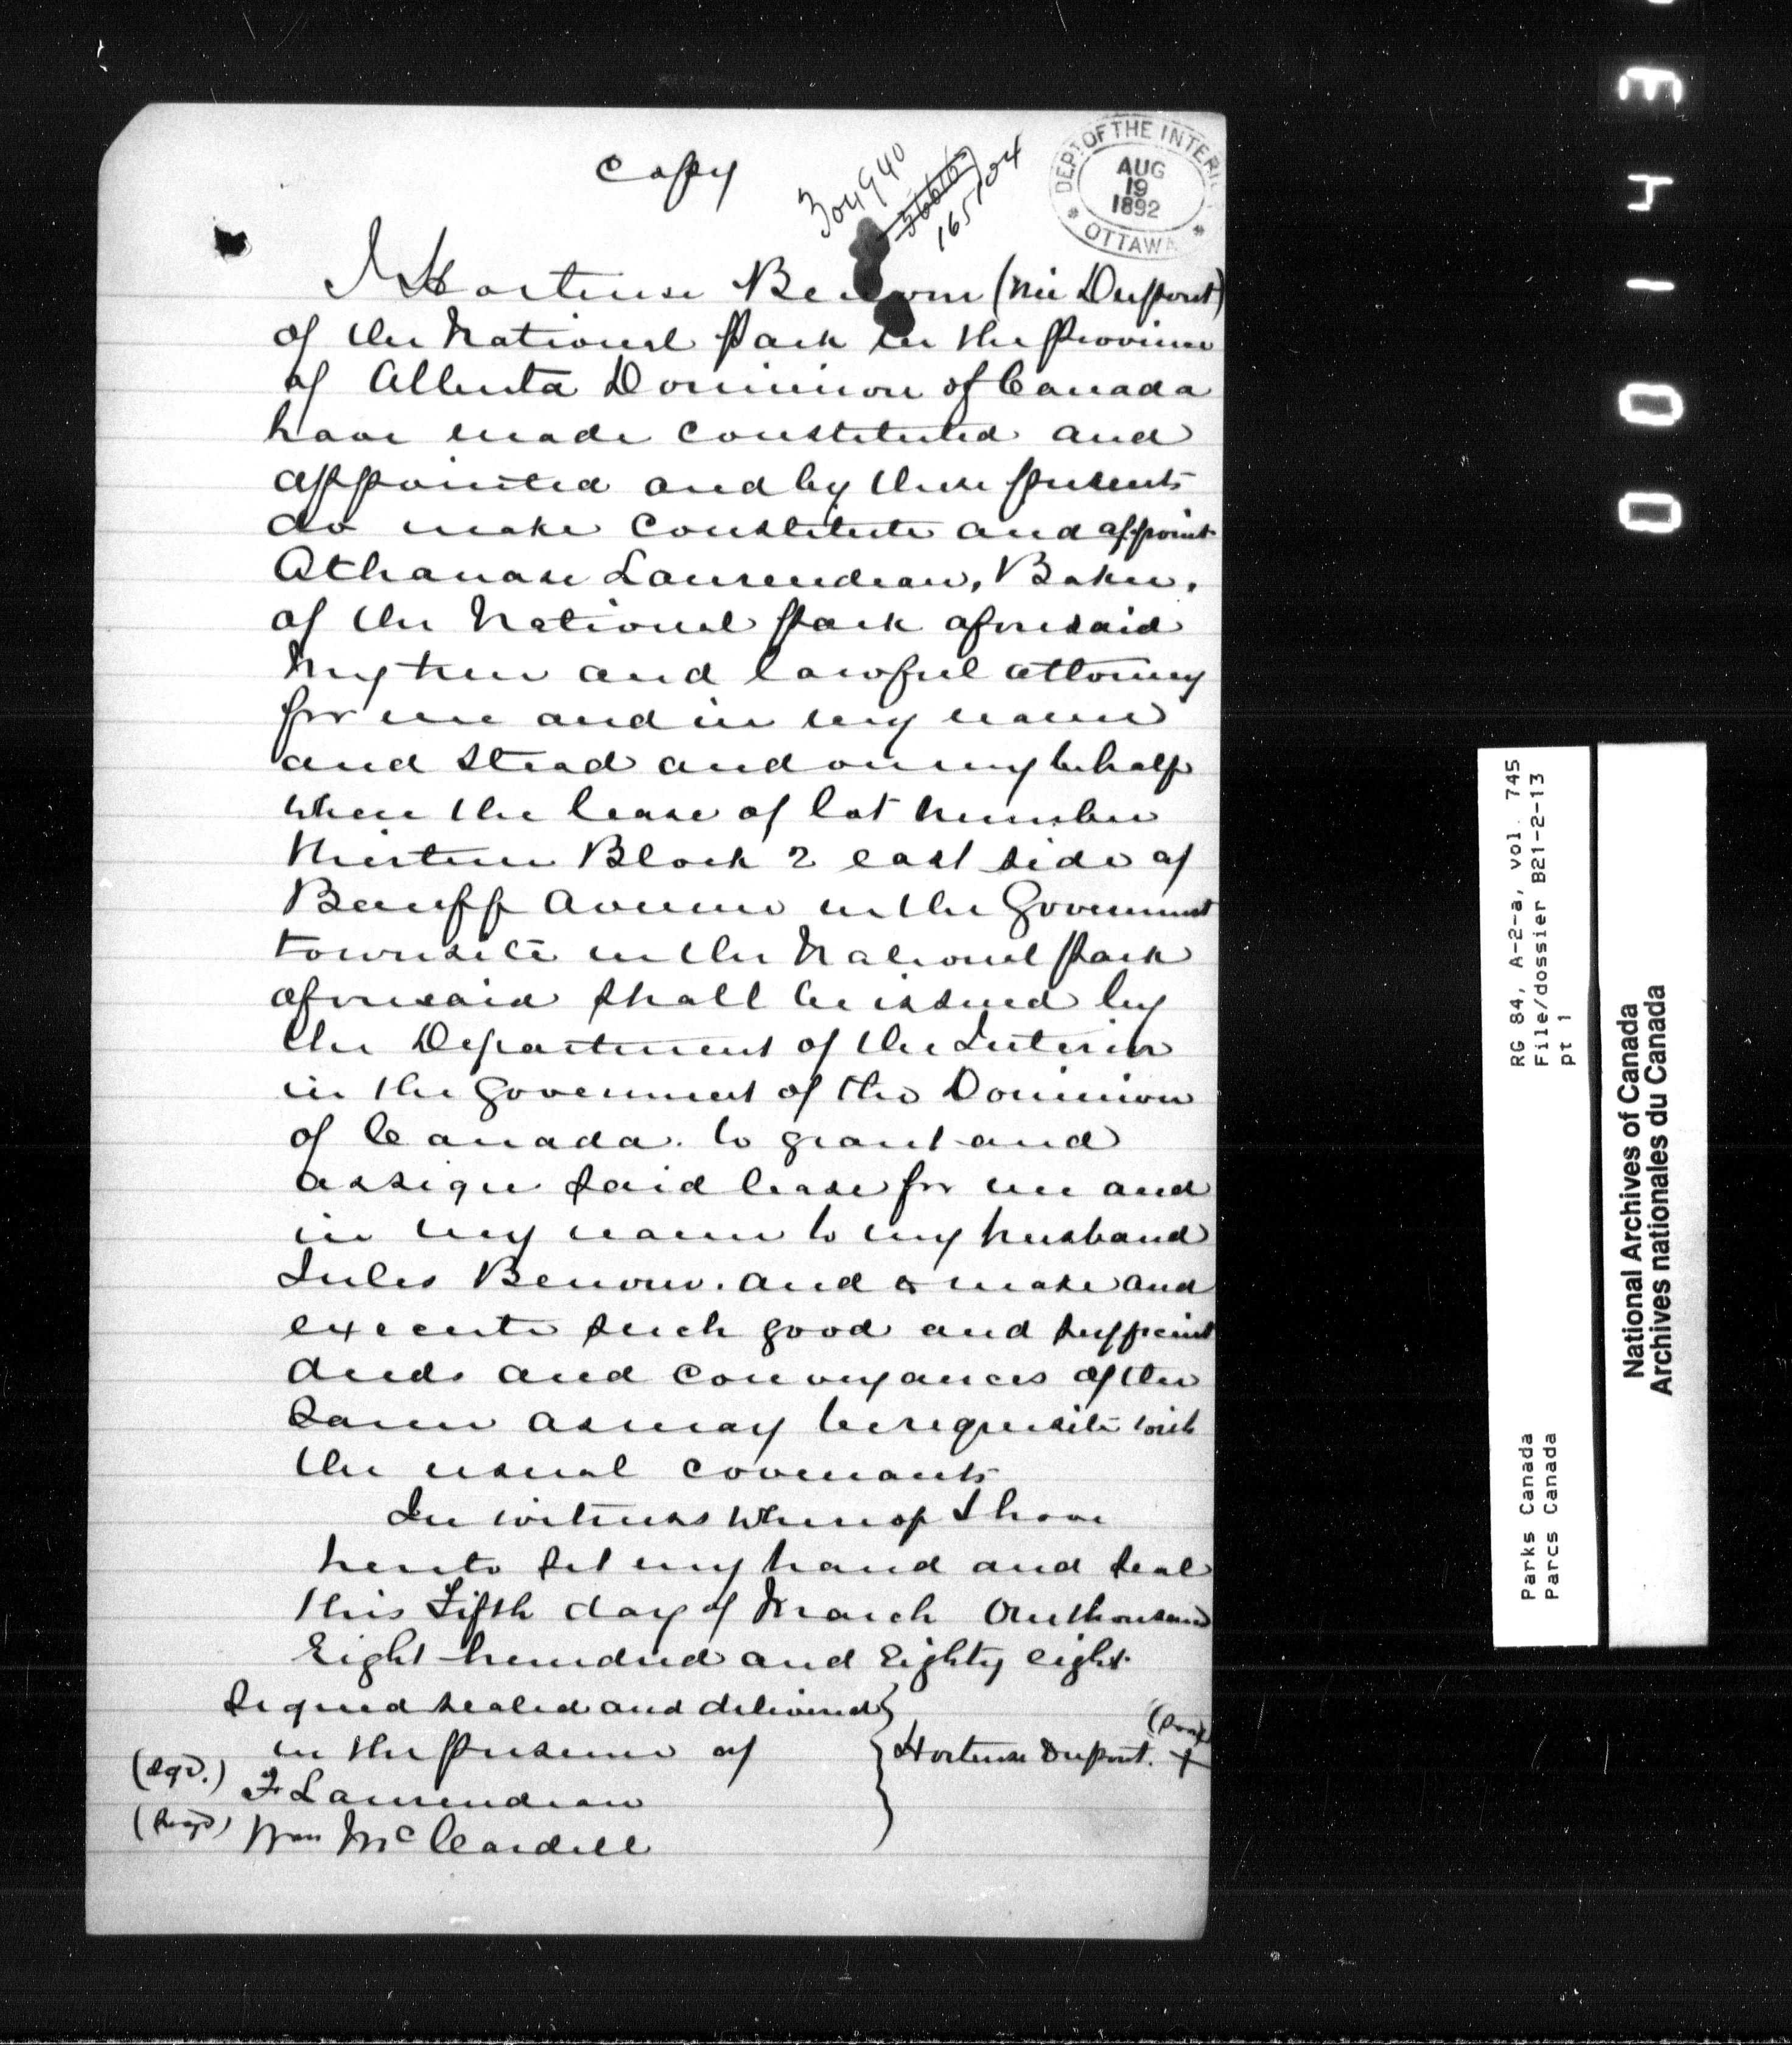 Copy
304940
56616
165104
DEPT OF THE INTERI
AUG
19
1892
OTTAWA
I Hortense Benom (née Dupont)
of the National Park in the Province
of Alberta Dominion of Canada
have made constituted and
appointed and by these presents
do make constitute and appoint
Athanase Laurendeau, Baker,
of the National Park aforesaid
my true and lawful attorney
for me and in my name
and stead and on my behalf
when the lease of lot number
thirteen Block 2 east side of
Banff Avenue in the Government
townsite in the National Park
aforesaid shall be issued by
the Department of the Interior
in the Government of the Dominion
of Canada. to grant and
assign said lease for me and
in my name to my husband
Jules Benom. and to make and
execute such good and sufficient
deeds and conveyances of the
same as may be requisite with
the usual covenants
In witness whereof I have
hereto set my hand and seal
this Fifth day of March One thousand
Eight hundred and Eighty eight
Signed sealed and delivered
in the presence of
(sgd.) F Laurendeau
(sgd) Wm McCardell
(sgd)
Hortense Dupont. +
RG 84, A-2-a, vol. 745
File/dossier B21-2-13
pt 1
Parks Canada
Parcs Canada
National Archives of Canada
Archives nationales du Canada